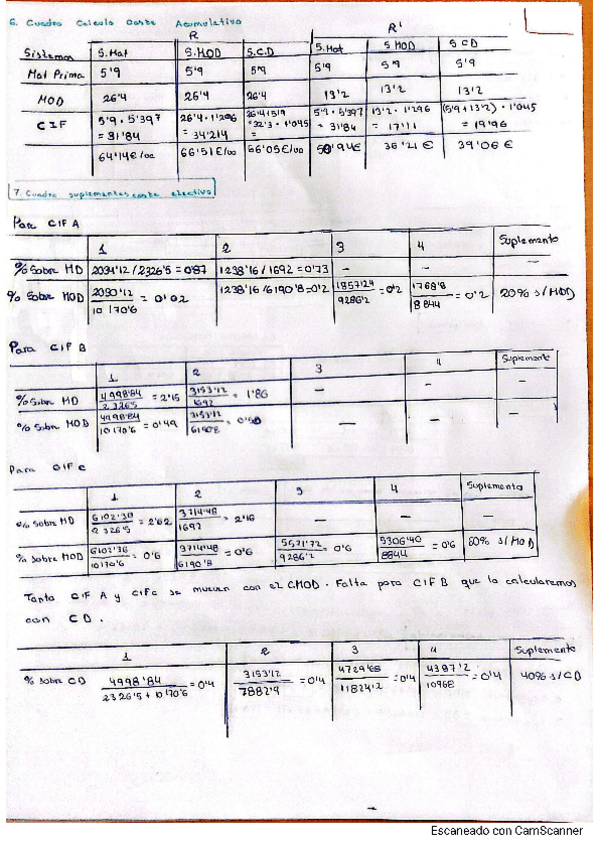 6. Cuadro Calculo Coste Acumulativo
R R'
Sistemas S.Mat S.MOD S.C.D S.Mat S MOD S CD
Mat Prima 5'9 5'9 5'9 5'9 5'9 5'9
MOD 26'4 26'4 26'4 13'2 13'2 13'2
CIF 5'9 · 5'397 = 31'84 26'4 · 1'296 = 34'214 26'4+5'9 = 32'3 · 1'045 = 5'9 · 5'397 = 31'84 13'2 · 1'296 = 17'11 (5'9 + 13'2) · 1'045 = 19'96
64'14€/00 66'51€/00 66'05€/00 50'94€ 36'21 € 39'06 €
7. Cuadro suplementos coste efectivo
Para CIF A
1 2 3 4 Suplemento
% Sobre MD 2034'12 / 2326'5 = 0'87 1238'16 / 1692 = 0'73 – –
% Sobre MOD 2030'12 / 10 170'6 = 0'02 1238'16 / 6190'8 = 0'2 1857'24 / 9286'2 = 0'2 1768'8 / 8844 = 0'2 20% s/MOD
Para CIF B
1 2 3 4 Suplemento
% Sobre MD 4998'84 / 2326'5 = 2'15 3153'12 / 1692 = 1'86 – – –
% Sobre MOD 4998'84 / 10170'6 = 0'49 3153'12 / 6190'8 = 0'50 – – –
Para CIF C
1 2 3 4 Suplemento
% Sobre MD 6102'38 / 2326'5 = 2'62 3714'48 / 1692 = 2'16 – – –
% Sobre MOD 6102'38 / 10170'6 = 0'6 3714'48 / 6190'8 = 0'6 5571'72 / 9286'2 = 0'6 5306'40 / 8844 = 0'6 60% s/MOD
Tanto CIF A y CIF C se mueven con el CMOD. Falta para CIF B que la calcularemos
con CD.
1 2 3 4 Suplemento
% Sobre CD 4998'84 / 2326'5 + 10 170'6 = 0'4 3153'12 / 7882'9 = 0'4 4729'68 / 11824'2 = 0'4 4387'2 / 10968 = 0'4 40% s/CD
Escaneado con CamScanner